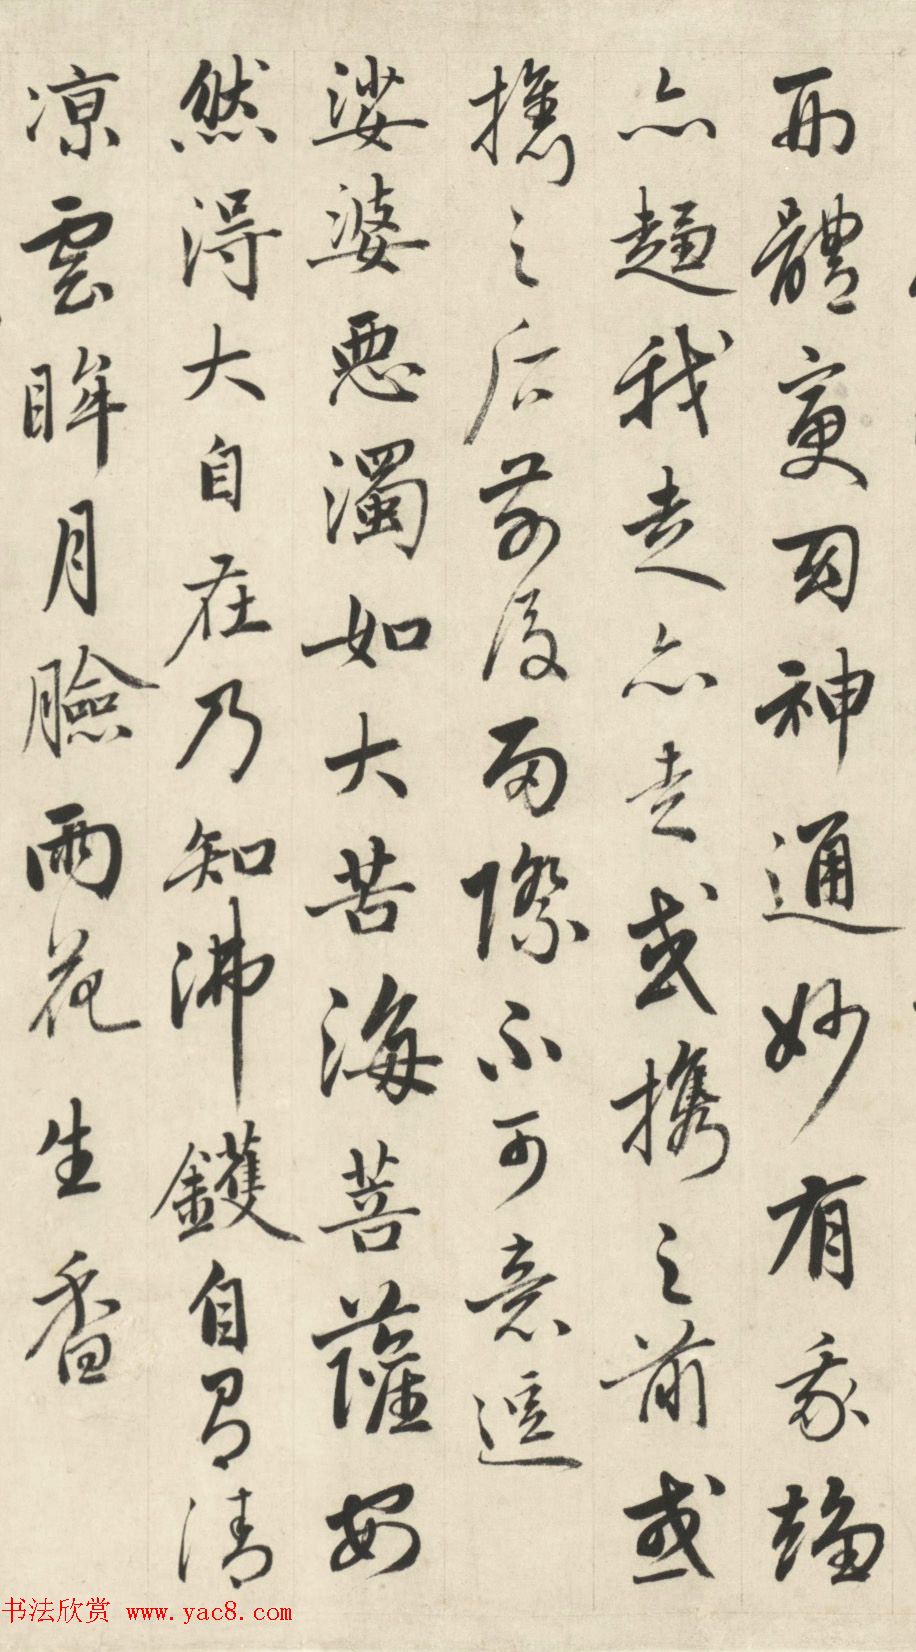 而體實同神通妙有我趨
亦趨我走亦走或携之前或
携之后前後兩際不可意逗
娑婆惡濁如大苦海菩薩安
然得大自在乃知沸鑊自有清
凉雲眸月臉雨花生香
书法欣赏 www.yac8.com